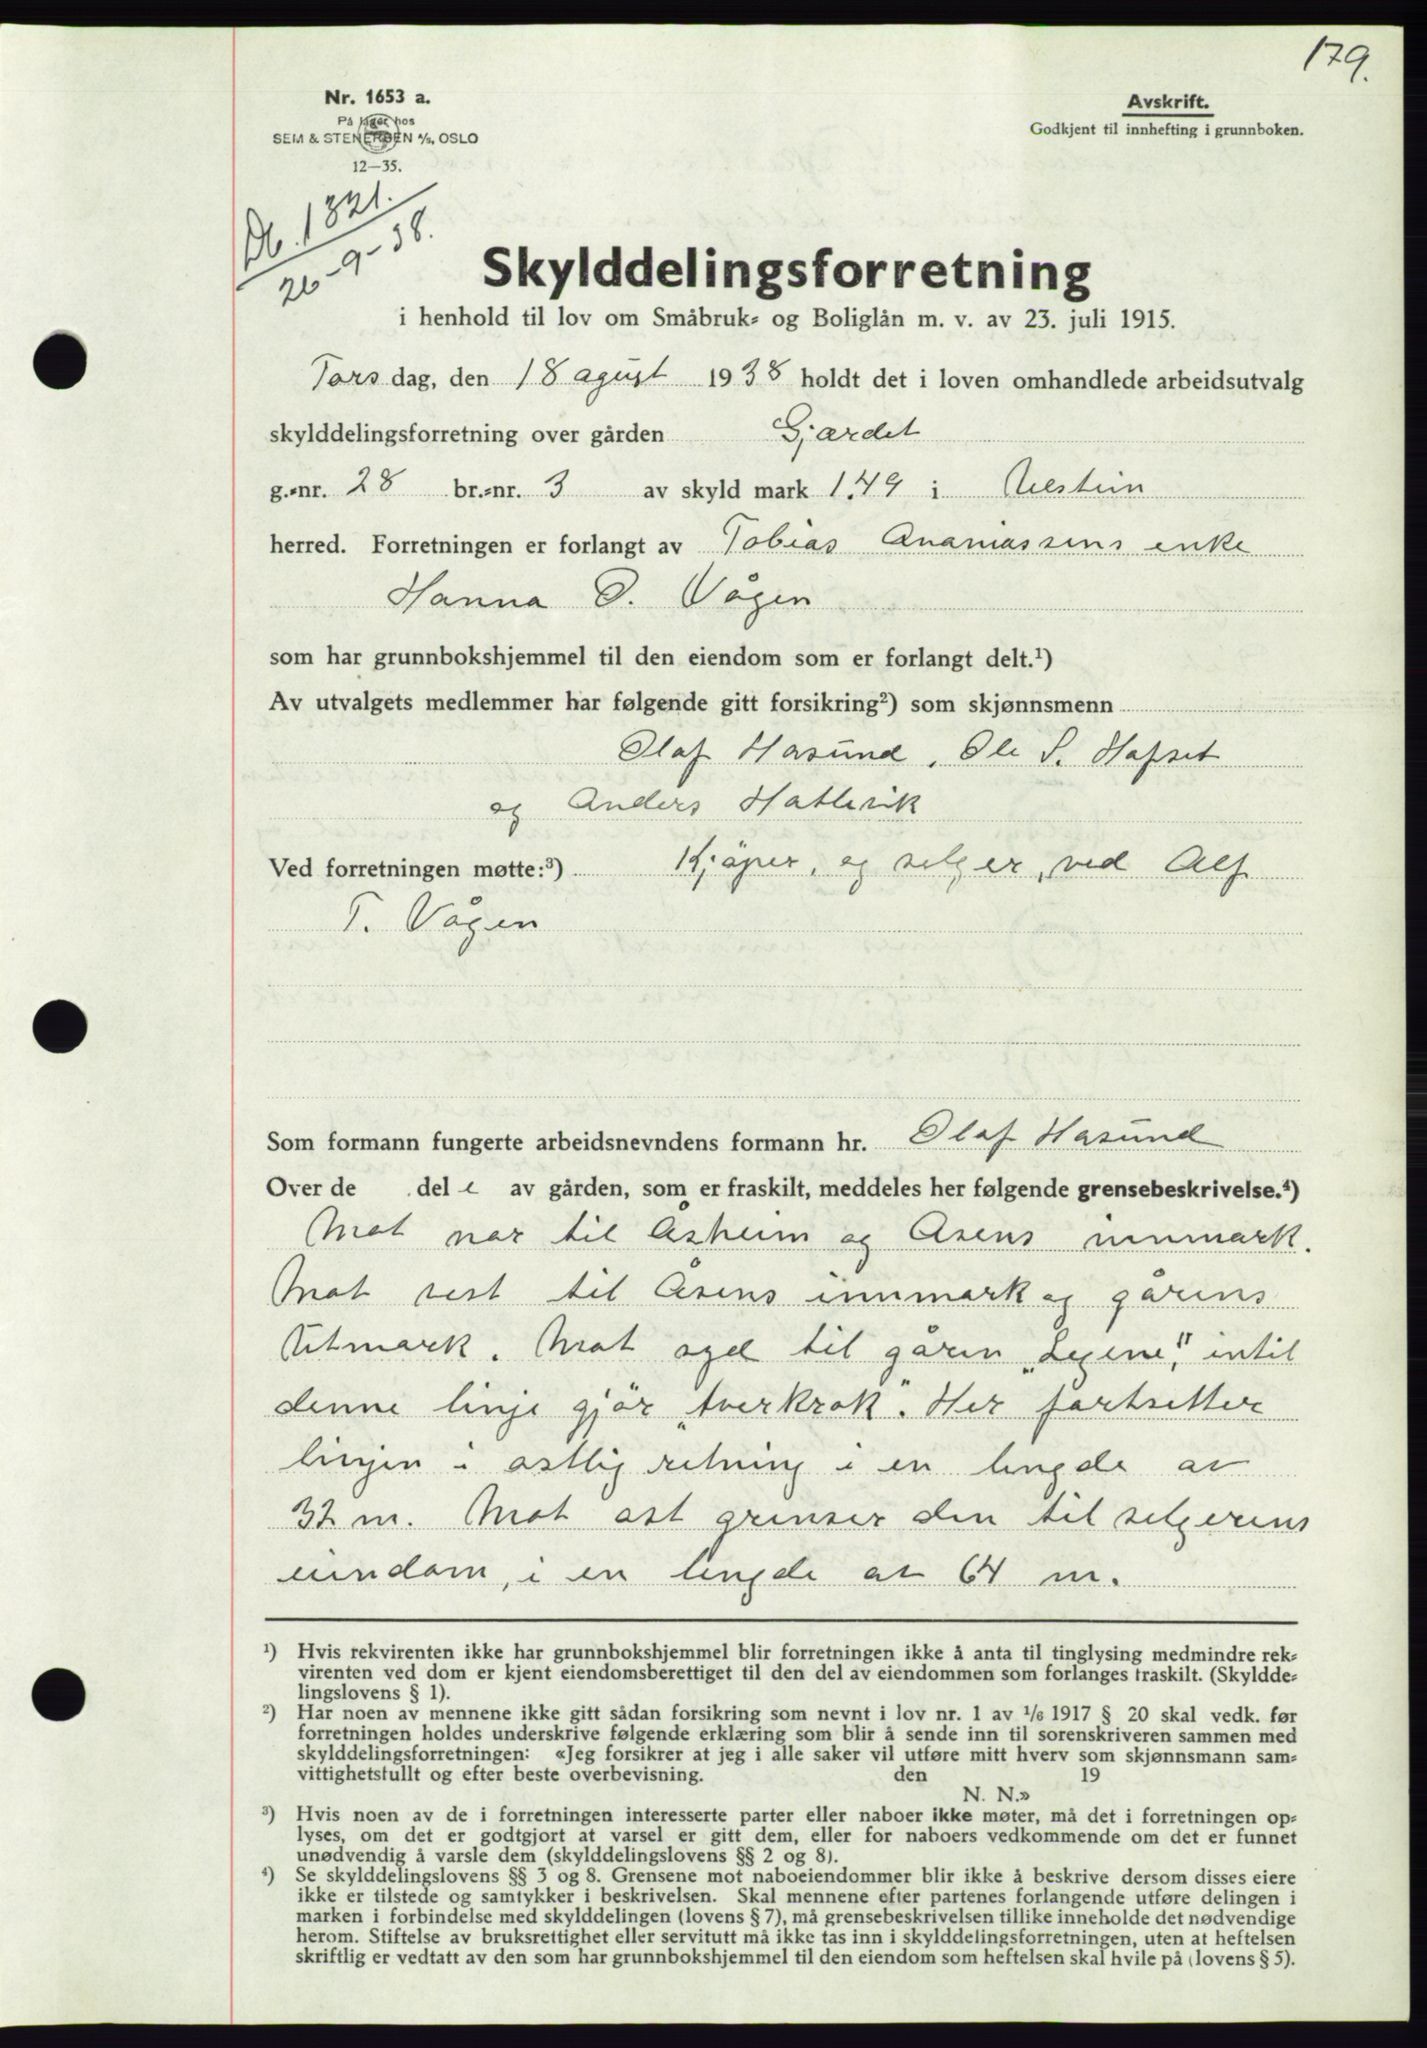 179.
Nr. 1653 a.
På lager hos
SEM & STENERSEN A/S, OSLO
12—35.
Avskrift.
Godkjent til innhefting i grunnboken.
Db. 1321.
26-9-38.
Skylddelingsforretning
i henhold til lov om Småbruk- og Boliglån m. v. av 23. juli 1915.
Tors dag, den 18 agust 1938 holdt det i loven omhandlede arbeidsutvalg
skylddelingsforretning over gården Gjærdet
g.-nr. 28 br.-nr. 3 av skyld mark 1,49 i Ulstein
herred. Forretningen er forlangt av Tobias Ananiassens enke
Hanna O. Vågen
som har grunnbokshjemmel til den eiendom som er forlangt delt.¹)
Av utvalgets medlemmer har følgende gitt forsikring²) som skjønnsmenn
Olaf Hasund, Ole S. Hafset
og Anders Hatlevik
Ved forretningen møtte:³) Kjöper, og selger, ved Alf
T. Vågen
Som formann fungerte arbeidsnevndens formann hr. Olaf Hasund
Over de del e av gården, som er fraskilt, meddeles her følgende grensebeskrivelse.⁴)
Mot nor til Åsheim og Åsens innmark.
Mot vest til Åsens innmark og gårens
Utmark. Mot syd til gåren „Legene", intil
denne linje gjör „tverkrok". Her fortsetter
linjen i østlig retning i en lengde av
32 m. Mot øst grenser den til selgerens
eiendom, i en lengde av 64 m.
¹) Hvis rekvirenten ikke har grunnbokshjemmel blir forretningen ikke å anta til tinglysing medmindre rek-
virenten ved dom er kjent eiendomsberettiget til den del av eiendommen som forlanges fraskilt. (Skyldde-
lingslovens § 1).
²) Har noen av mennene ikke gitt sådan forsikring som nevnt i lov nr. 1 av 1/6 1917 § 20 skal vedk. før
forretningen holdes underskrive følgende erklæring som blir å sende inn til sorenskriveren sammen med
skylddelingsforretningen: «Jeg forsikrer at jeg i alle saker vil utføre mitt hverv som skjønnsmann sam-
vittighetsfullt og efter beste overbevisning. den 19
N. N.»
³) Hvis noen av de i forretningen interesserte parter eller naboer ikke møter, må det i forretningen op-
lyses, om det er godtgjort at varsel er gitt dem, eller for naboers vedkommende om det er funnet
unødvendig å varsle dem (skylddelingslovens §§ 2 og 8).
⁴) Se skylddelingslovens §§ 3 og 8. Grensene mot naboeiendommer blir ikke å beskrive dersom disses eiere
ikke er tilstede og samtykker i beskrivelsen. Skal mennene efter partenes forlangende utføre delingen i
marken i forbindelse med skylddelingen (lovens § 7), må grensebeskrivelsen tillike inneholde det nødvendige
herom. Stiftelse av bruksrettighet eller servitutt må ikke tas inn i skylddelingsforretningen, uten at heftelsen
skriftlig er vedtatt av den som har grunnbokshjemmel til den eiendom som heftelsen skal hvile på (lovens § 5).